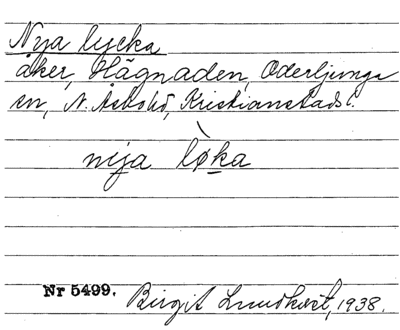 Nya lycka
åker, Hägnaden, Oderljunga
sn, N. Åsbo hd, Kristianstads l.
nija lø̀ka
Nr 5499.
Birgit Lundkvist, 1938.